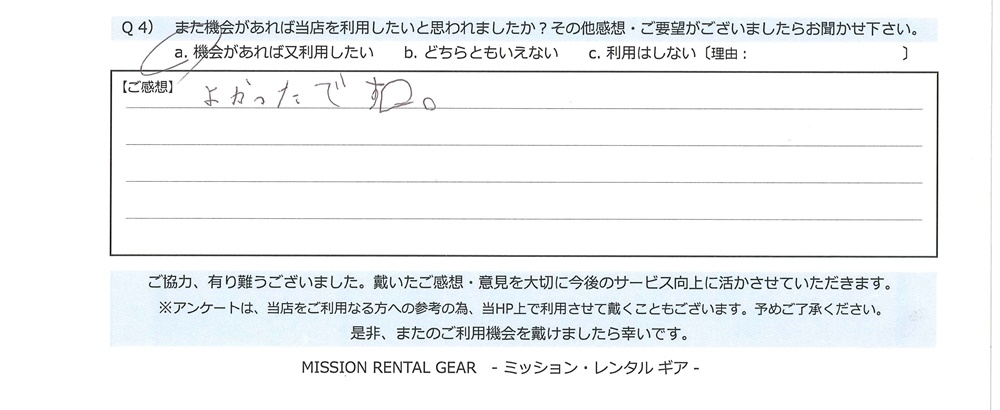 Q4） また機会があれば当店を利用したいと思われましたか？その他感想・ご要望がございましたらお聞かせ下さい。
a. 機会があれば又利用したい b. どちらともいえない c. 利用はしない〔理由： 〕
【ご感想】
よかったですね。
ご協力、有り難うございました。戴いたご感想・意見を大切に今後のサービス向上に活かさせていただきます。
※アンケートは、当店をご利用なる方への参考の為、当HP上で利用させて戴くこともございます。予めご了承ください。
是非、またのご利用機会を戴けましたら幸いです。
MISSION RENTAL GEAR - ミッション・レンタル ギア -